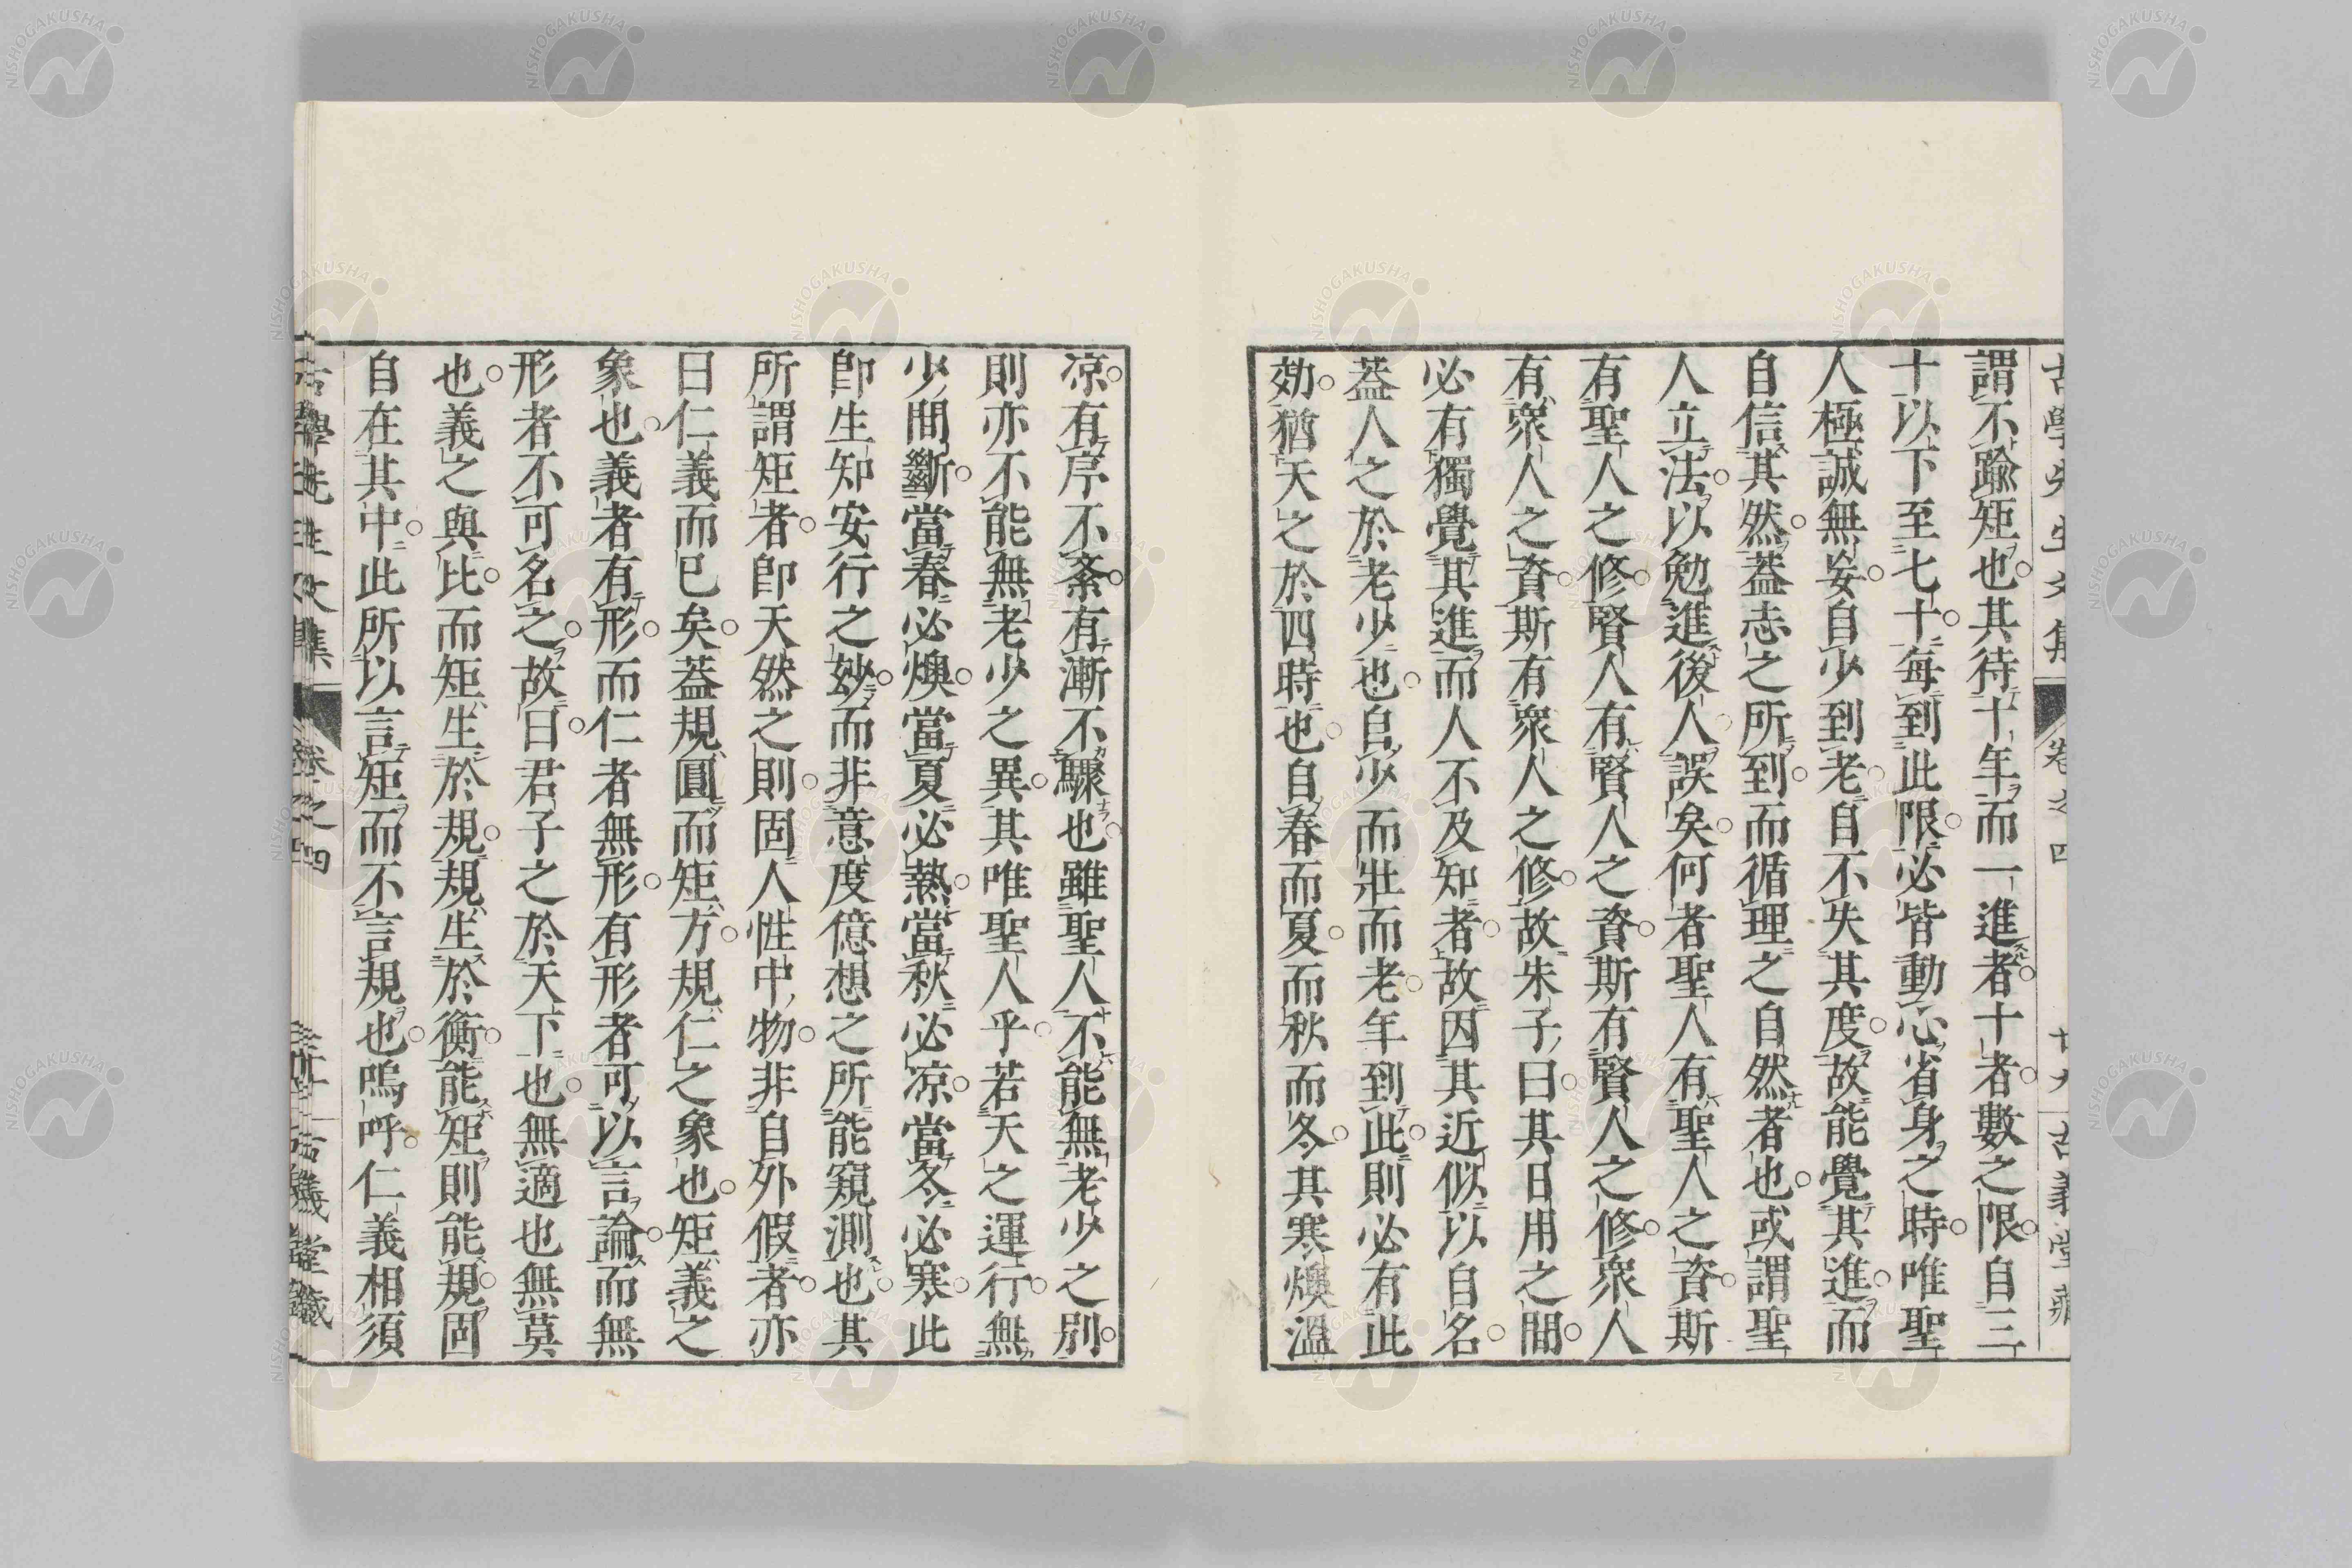 古學先生文集 卷之四 廿九 古義堂藏
謂不踰矩也其待十年而一進者十者數之限自三
十以下至七十每到此限必皆動心省身之時唯聖
人極誠無妄自少到老自不失其度故能覺其進而
自信其然蓋志之所到而循理之自然者也或謂聖
人立法以勉進後人誤矣何者聖人有聖人之資斯
有聖人之修賢人有賢人之資斯有賢人之修衆人
有衆人之資斯有衆人之修故朱子曰其日用之間
必有獨覺其進而人不及知者故因其近似以自名
蓋人之於老少也自少而壯而老年到此則必有此
效猶天之於四時也自春而夏而秋而冬其寒燠溫
凉有序不紊有漸不驟也雖聖人不能無老少之別
則亦不能無老少之異其唯聖人乎若天之運行無
少間斷當春必燠當夏必熱當秋必凉當冬必寒此
卽生知安行之妙而非意度億想之所能窺測也其
所謂矩者卽天然之則固人性中物非自外假者亦
曰仁義而已矣蓋規圓而矩方規仁之象也矩義之
象也義者有形而仁者無形有形者可以言論而無
形者不可名之故曰君子之於天下也無適也無莫
也義之與比而矩生於規規生於衡能矩則能規固
自在其中此所以言矩而不言規也嗚呼仁義相須
古學先生文集 卷之四 三十 古義堂藏
NISHOGAKUSHA